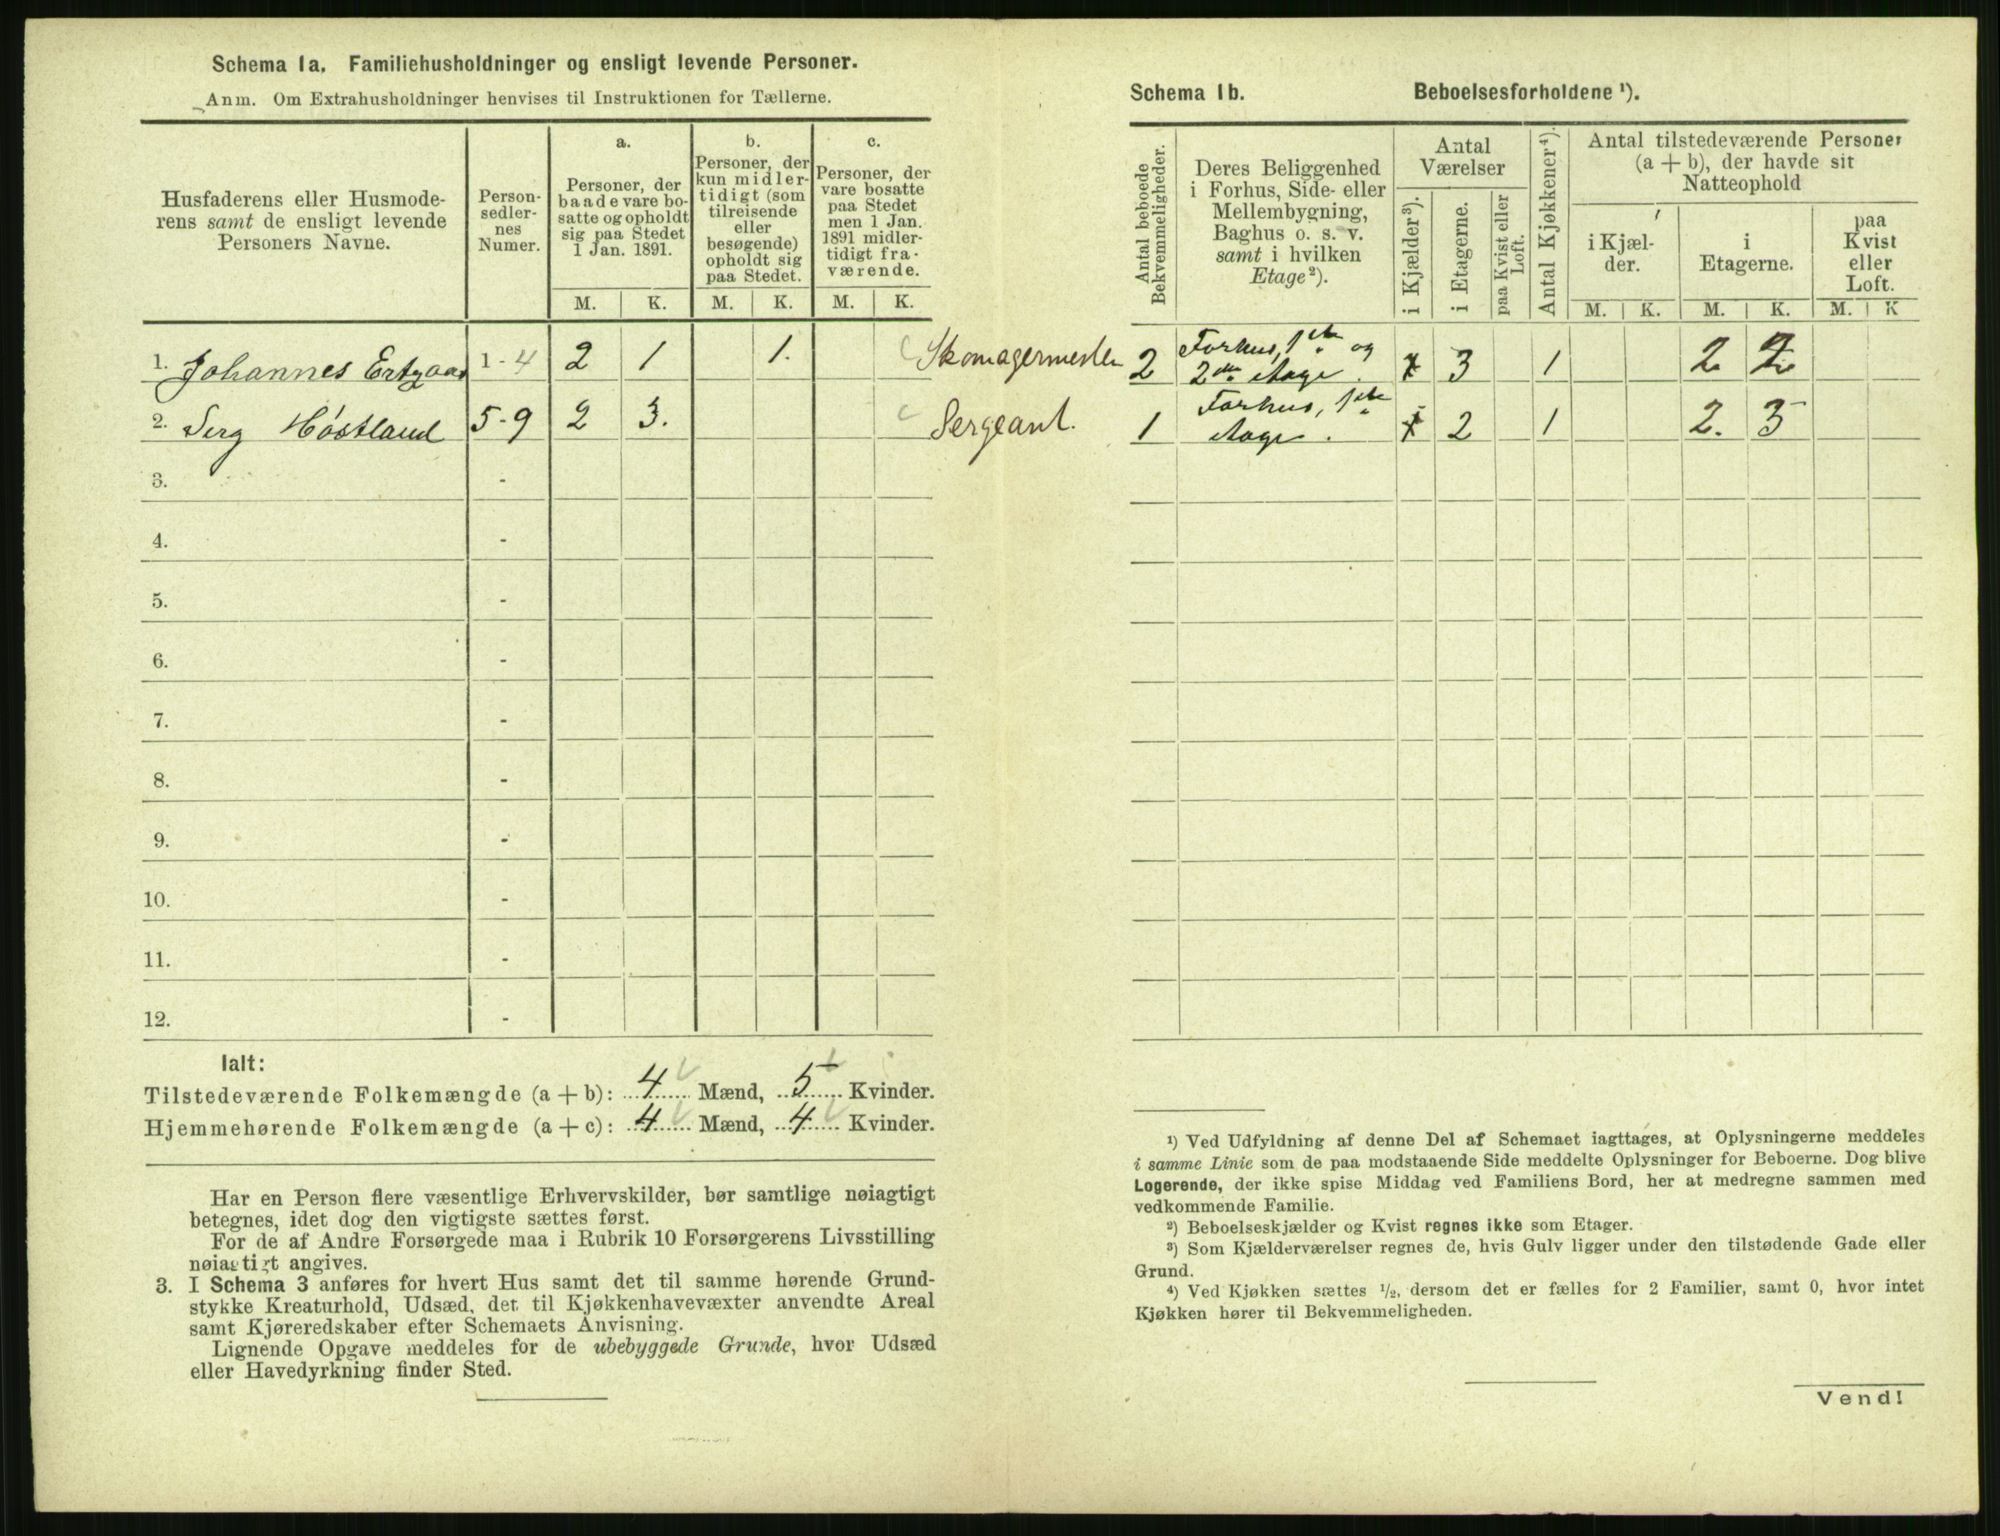 Schema 1a. Familiehusholdninger og ensligt levende Personer.
Anm. Om Extrahusholdninger henvises til Instruktionen for Tællerne.
Husfaderens eller Husmode-
rens samt de ensligt levende
Personers Navne.
Person-
sedler-
nes
Numer.
a.
Personer, der
baade vare bo-
satte og opholdt
sig paa Stedet
1 Jan. 1891.
b.
Personer, der
kun midler-
tidigt (som
tilreisende
eller
besøgende)
opholdt sig
paa Stedet.
c.
Personer, der
vare bosatte
paa Stedet
men 1 Jan.
1891 midler-
tidigt fra-
værende.
M. K. M. K. M. K.
1. Johannes 1-4 2 1 1. Skomagermester
2. Serg Høstland 5-9 2 3. Sergeant.
3. -
4. -
5. -
6. -
7. -
8. -
9. -
10. -
11. -
12. -
Ialt:
Tilstedeværende Folkemængde (a + b): 4 Mænd, 5 Kvinder.
Hjemmehørende Folkemængde (a + c): 4 Mænd, 4 Kvinder.
Har en Person flere væsentlige Erhvervskilder, bør samtlige nøiagtigt
betegnes, idet dog den vigtigste sættes først.
For de af Andre Forsørgede maa i Rubrik 10 Forsørgerens Livsstilling
nøiagtigt angives.
3. I Schema 3 anføres for hvert Hus samt det til samme hørende Grund-
stykke Kreaturhold, Udsæd, det til Kjøkkenhavevæxter anvendte Areal
samt Kjøreredskaber efter Schemaets Anvisning.
Lignende Opgave meddeles for de ubebyggede Grunde, hvor Udsæd
eller Havedyrkning finder Sted.
Schema 1b. Beboelsesforholdene ¹).
Antal beboede
Bekvemmeligheder.
Deres Beliggenhed
i Forhus, Side- eller
Mellembygning,
Baghus o. s. v.
samt i hvilken
Etage²).
Antal
Værelser
i Kjælder³).
i Etagerne.
paa Kvist eller
Loft.
Antal Kjøkkener⁴).
Antal tilstedeværende Personer
(a + b), der havde sit
Natteophold
i Kjæl-
der.
i
Etagerne.
paa
Kvist
eller
Loft.
M. K. M. K. M. K
2 Forhus, 1ste og
2den Etage. 3 1 2. 2
1 Forhus, 1ste
Etage. 2 1 2. 3
¹) Ved Udfyldning af denne Del af Schemaet iagttages, at Oplysningerne meddeles
i samme Linie som de paa modstaaende Side meddelte Oplysninger for Beboerne. Dog blive
Logerende, der ikke spise Middag ved Familiens Bord, her at medregne sammen med
vedkommende Familie.
²) Beboelseskjælder og Kvist regnes ikke som Etager.
³) Som Kjælderværelser regnes de, hvis Gulv ligger under den tilstødende Gade eller
Grund.
⁴) Ved Kjøkken sættes ½, dersom det er fælles for 2 Familier, samt 0, hvor intet
Kjøkken hører til Bekvemmeligheden.
Vend!